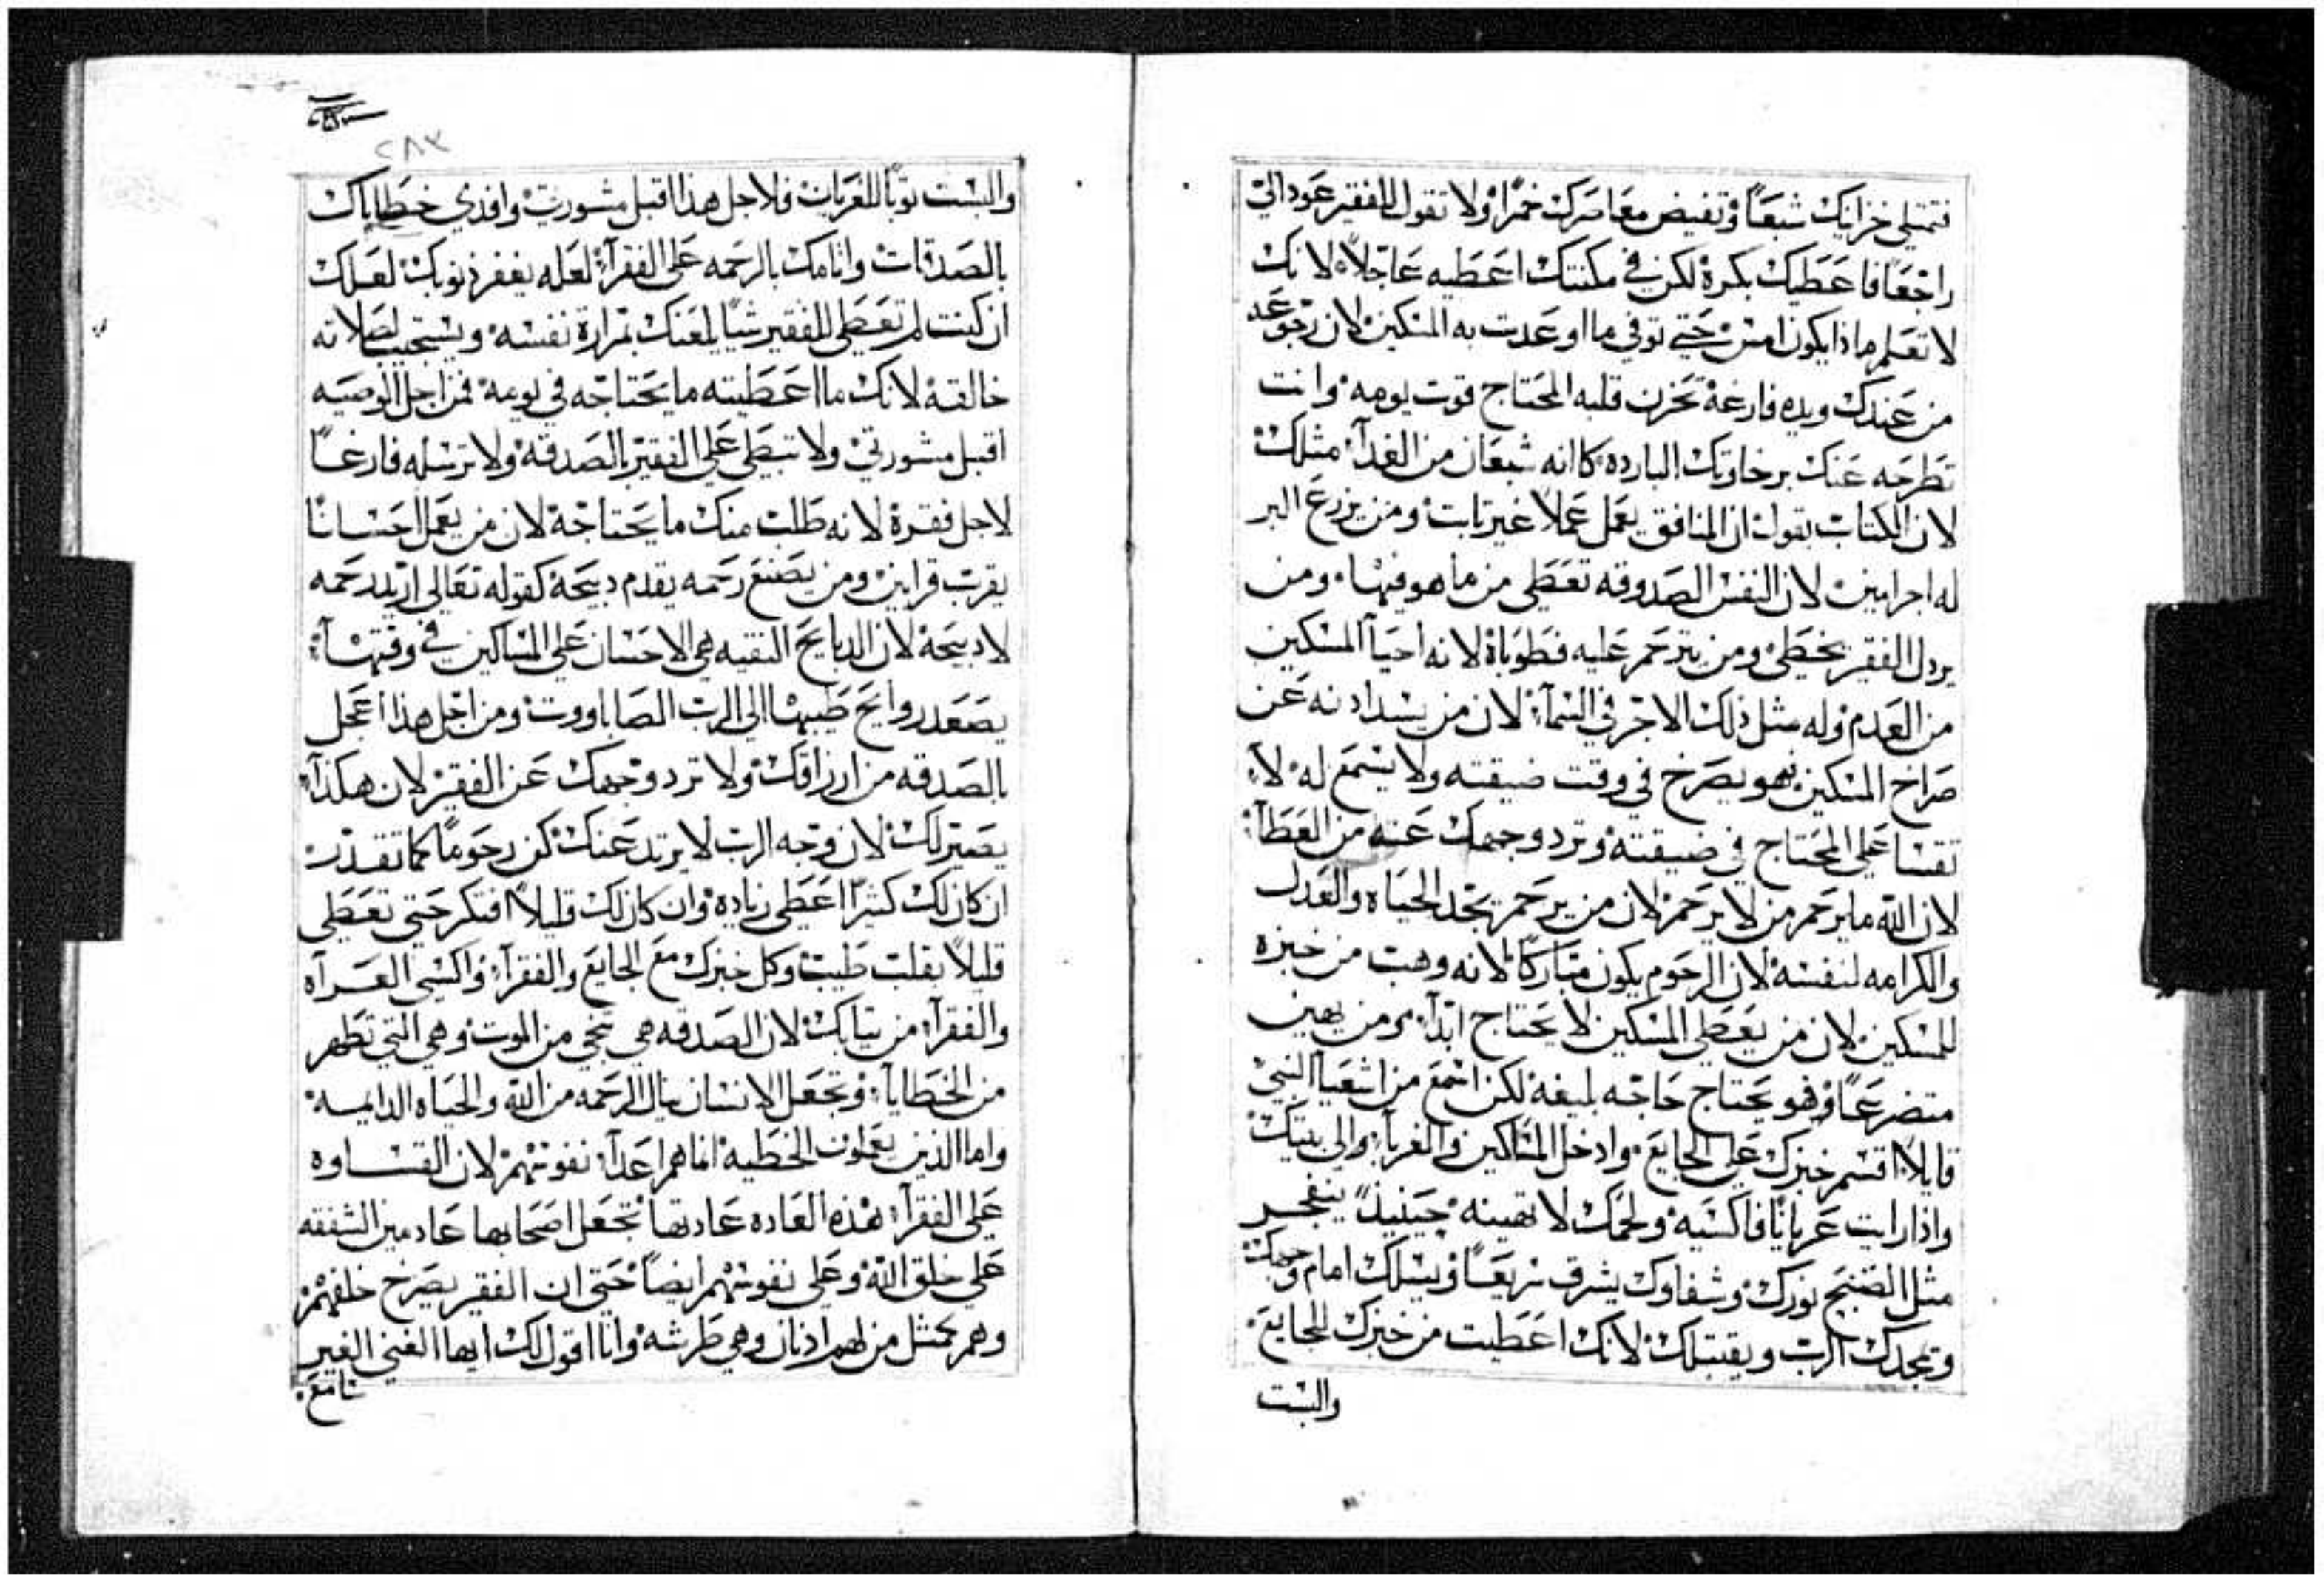 فتمتلي خزاينك شبعاً وتفيض معاصرك خمراً ولا تقول للفقير عود الي
راجعاً فاعطيك بكرة لكن في مكنتك اعطيه عاجلاً لانك
لا تعلم ماذا يكون امس حتي توفي ما اوعدت به المسكين لان رجوعه
من عندك ويده فارغة تحزن قلبه المحتاج قوت يومه وانت
تطرحه عنك برخاوتك البارده كانه شبعان من الغدآ مثلك
لان الكتاب يقول ان المنافق يعمل عملاً غير ثابت ومن يزرع البر
له اجر امين لان النفس الصدوقه تعطي من ما هو فيها ومن
يردل الفقير يخطي ومن يترحم عليه فطوباة لانه احيا المسكين
من العدم وله مثل ذلك الاجر في السمآ لان من يسد ادنه عن
صراخ المسكين فهو يصرخ في وقت ضيقته ولا يسمع له لا
تقسا علي المحتاج في ضيقته وترد وجهك عنه من العطآ
لان الله ما يرحم من لا يرحم لان من يرحم يجد الحياه والعدل
والكرامه لنفسه لان الرحوم يكون متباركاً لانه وهب من خبزه
للمسكين لان من يعطي المسكين لا يحتاج ابداً ومن يهين
متضرعاً وفهو يحتاج حاجه لميفه لكن اسمع من اشعيا النبي
قايلاً اقسم خبزك علي الجايع وادخل المساكين والغربآ والي بيتك
واذا رايت عرياناً فاكسيه ولحمك لا تهينه حينيذٍ ينفجر
مثل الصبح نورك وشفاوك يشرق سريعاً ويسلك امام وجهك
وتمجدك الرب ويقتبلك لانك اعطيت من خبزك للجايع
والبست
٢٨٣
والبست توباً للعريان فلاجل هذا اقبل مشورتي وافدي خطاياك
بالصدقات واثامك بالرحمه علي الفقرآ لعله يغفر ذنوبك لعلك
ان كنت لم تعطي للفقير شياً يلعنك بمرارة نفسه ويستجيب لصلاته
خالقة لانك ما اعطيته ما يحتاجه في يومه فمن اجل الوصيه
اقبل مشورتي ولا تبطي علي الفقير بالصدقة ولا ترسله فارغاً
لاجل فقرة لانه طلب منك ما يحتاجة لان من يعمل احساناً
يقرب قرابين ومن يصنع رحمه يقدم دبيحة كقوله تعالي اريد رحمه
لا دبيحة لان الدبايح النقيه هي الاحسان علي المساكين في وقتهآ
يصعد روايح طيبها الي الرب الصاباووت ومن اجل هذا اعجل
بالصدقه من ارزاقك ولا ترد وجهك عن الفقير لان هكذآ
يصير لك لان وجه الرب لا يرتد عنك كن رحوماً كما تقدر
ان كان لك كثيراً اعطي زياده وان كان لك قليلاً افتكر حتي تعطي
قليلاً بقلب طيب وكل خبزك مع الجايع والفقرآ واكسي العرآه
والفقرآ من تيابك لان الصدقه هي تنجي من الموت وهي التي تطهر
من الخطايآ وتجعل الانسان ينال الرحمه من الله والحياه الدايمه
واما الذين يعملون الخطيه انما هم اعدآ نفوسهم لان القساوه
علي الفقرآ هذه العاده عادتها تجعل اصحابها عادمين الشفقه
علي خلق الله وعلي نفوسهم ايضاً حتي ان الفقير يصرخ خلفهم
وهم كمثل من لهم اذنان وهي طرشه وانا اقول لك ايها الغني الغير
سامع